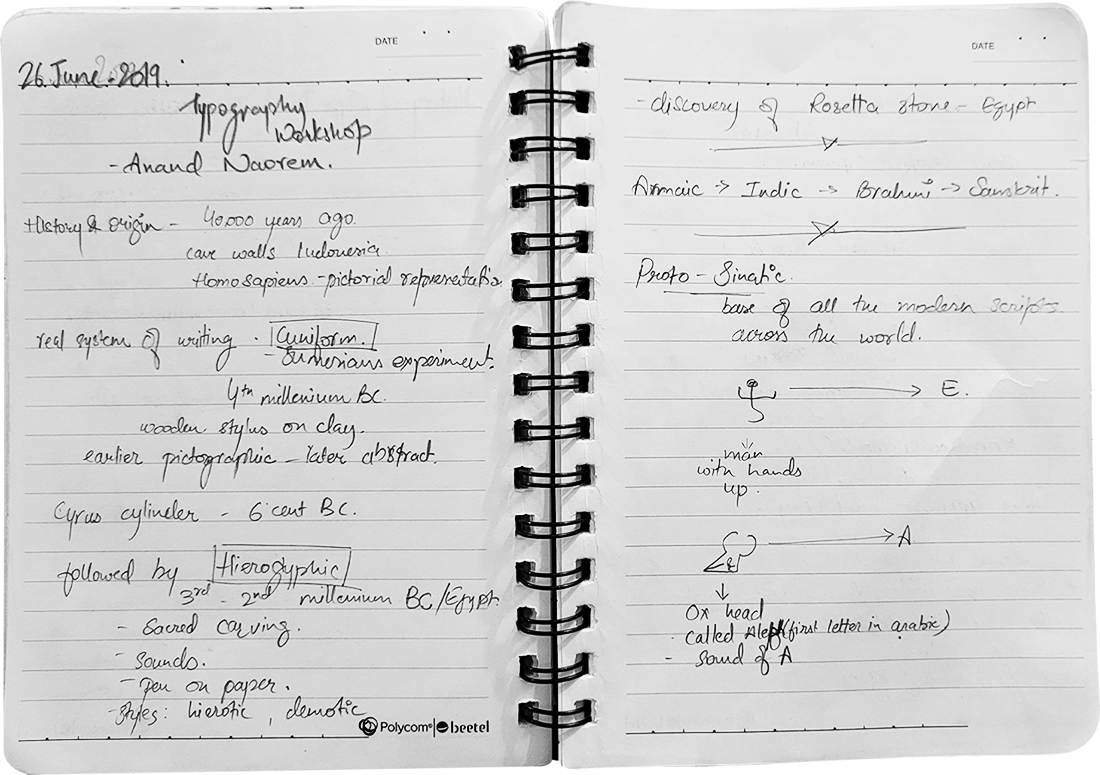 DATE
26.June.2019.
Typography
Workshop
- Anand Naorem.
History & origin - 40,000 years ago.
cave walls Indonesia.
Homosapiens - pictorial representatis
real system of writing. Cuniform.
- Sumerians experiment.
4th millenium BC.
wooden stylus on clay.
earlier pictographic - later abstract.
Cyrus cylinder - 6 cent BC.
followed by Hieroglyphic
3rd - 2nd millenium BC/Egypt.
- Sacred carving.
- Sounds.
- Pen on paper.
- Styles: hierotic, demotic
Polycom | beetel
DATE
- discovery of Rosetta stone - Egypt
Armaic → Indic → Brahmi → Sanskrit.
Proto - Sinatic.
base of all the modern scripts
across the world.
→ E.
man
with hands
up.
→ A
Ox head
- called Aleph (first letter in arabic)
- Sound of A